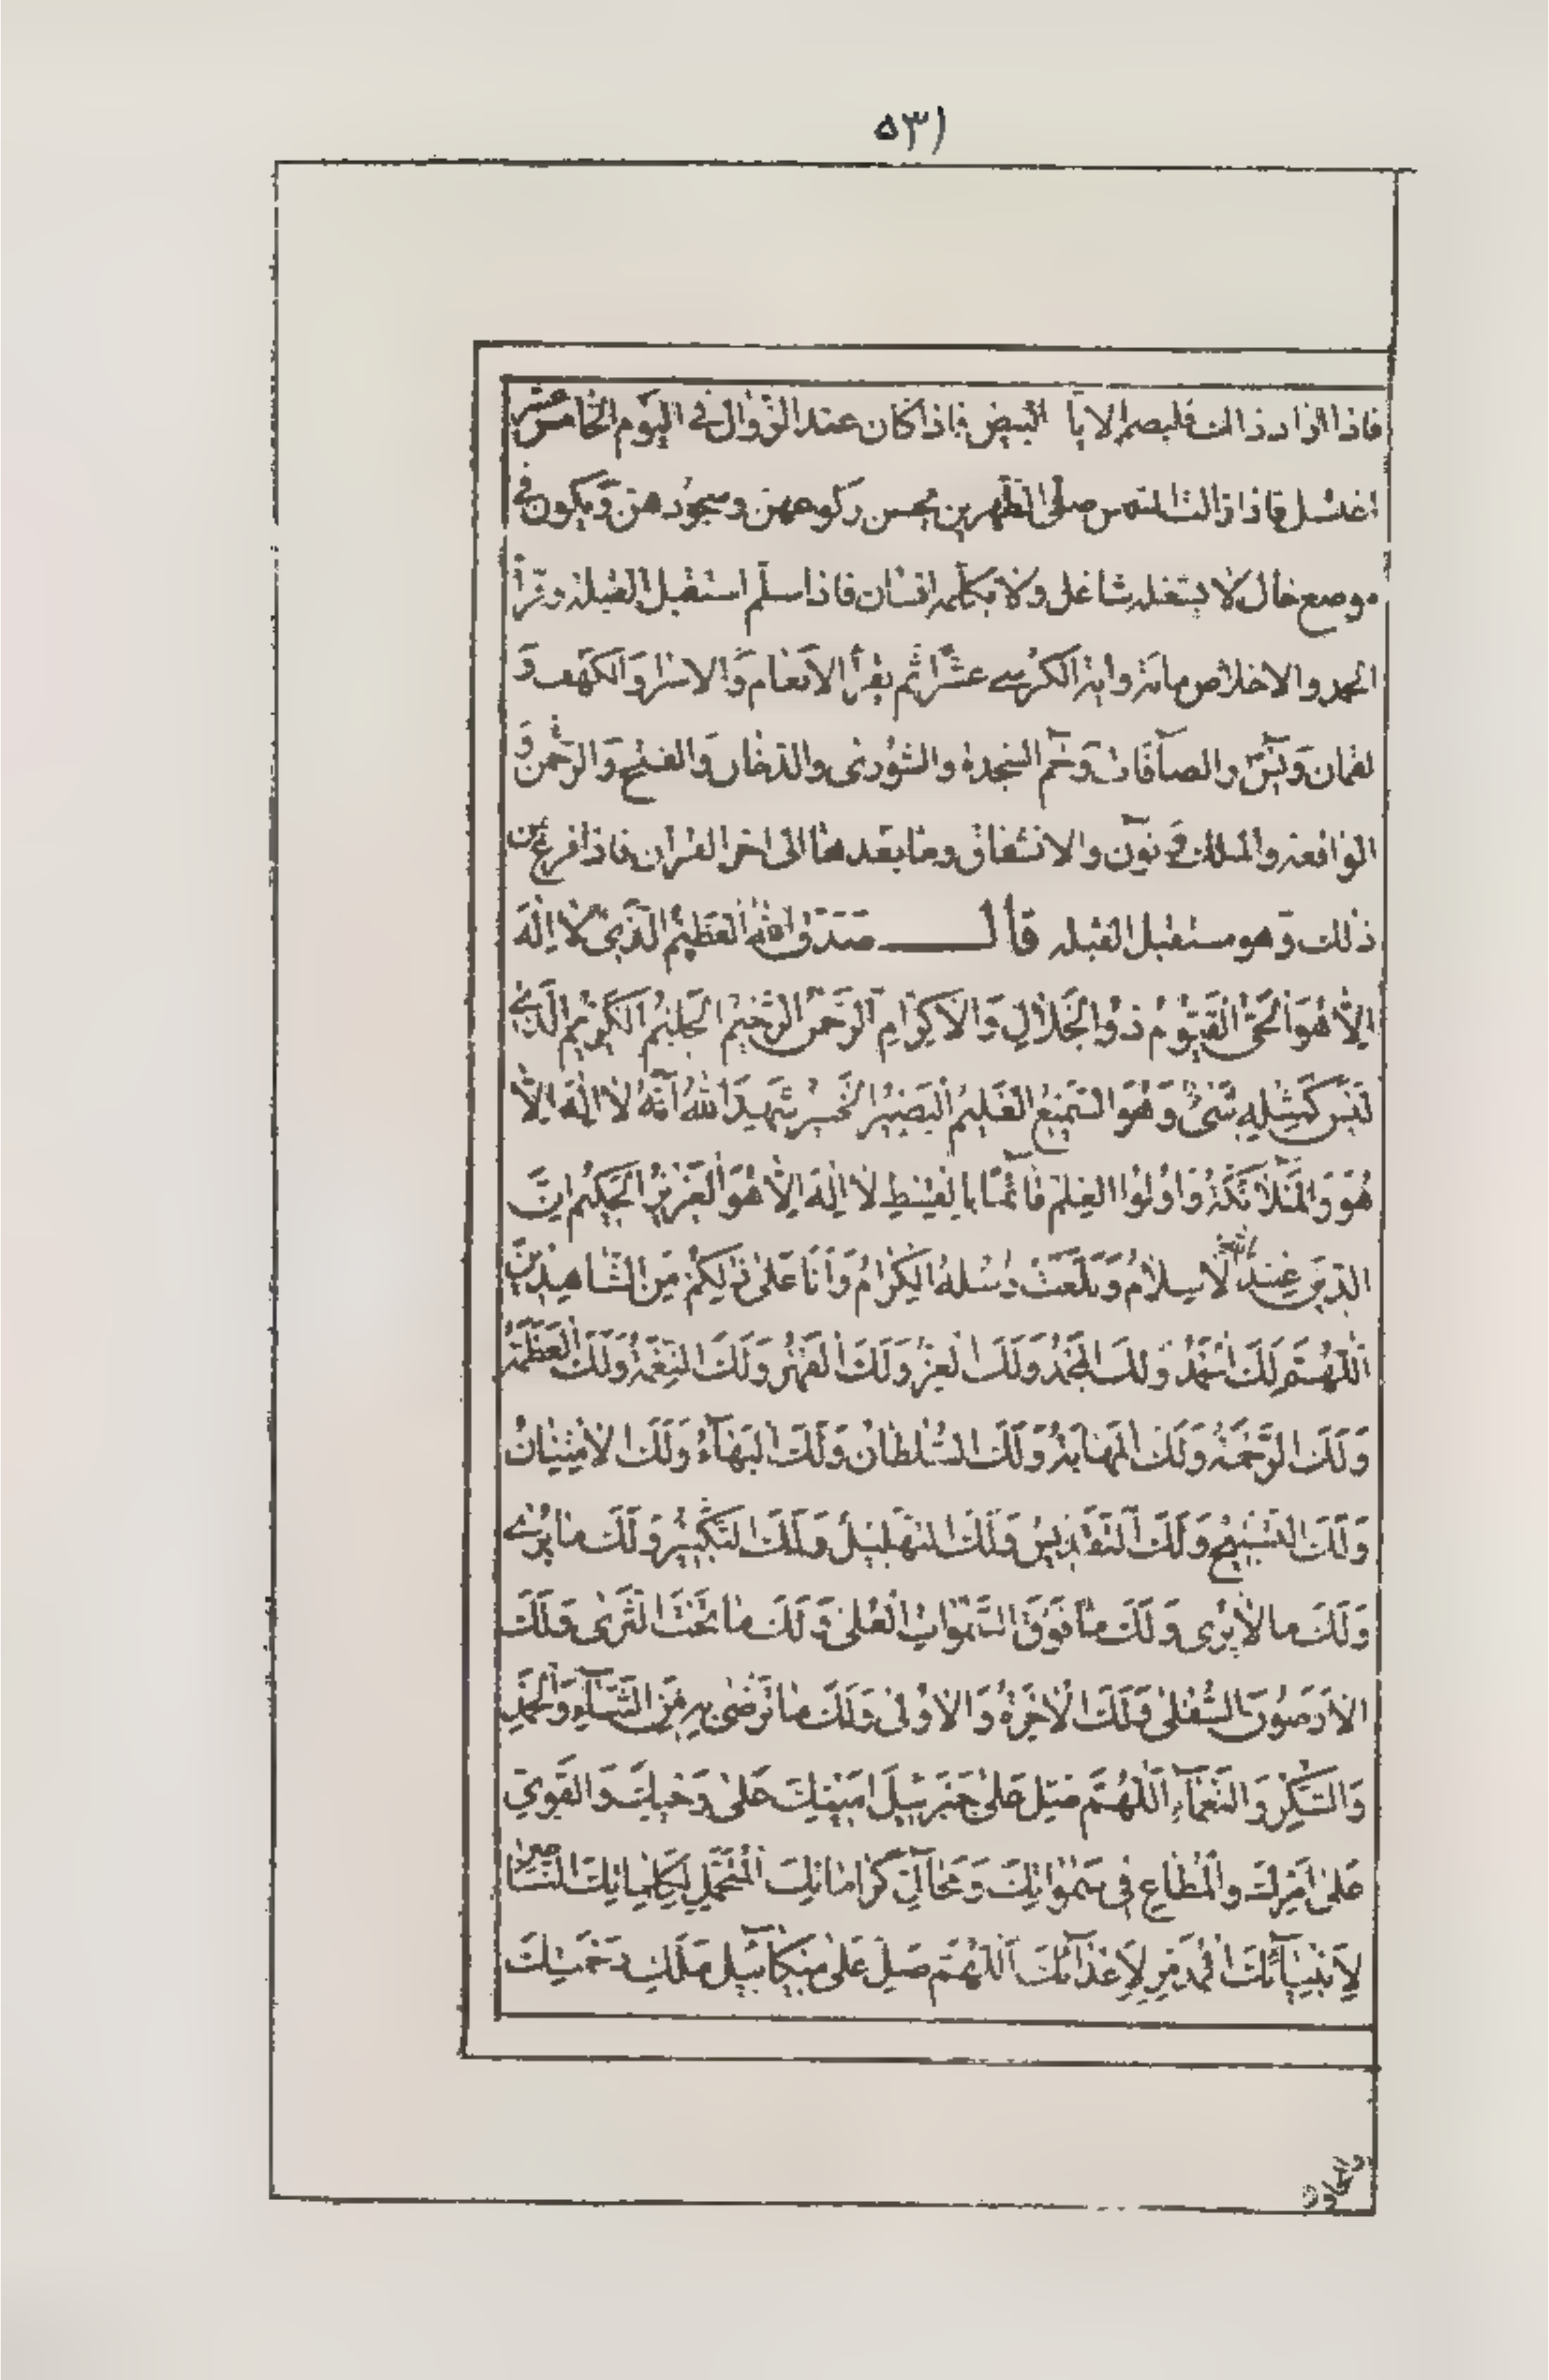 ٥٣١
فاذا اراد ذالك فليصم الايام البيض فاذا كان عند الزوال في اليوم الخامس عشر
اغتسل فاذا زالت الشمس صلى الظهرين يحسن ركوعهن وسجودهن وَيكون في
موضع خال لا يشغله شاغل ولا يكلمه انسان فاذا سلّم استقبل القبلة وقرأ
الحمد والاخلاص مائة واية الكرسي عشرًا ثم يقرأ الانعام وَالاسرا وَالكهف وَ
لقمان وَيسٓ والصٓافات وَحٓم السجدة والشورى والدخان وَالفتح وَالرحمن وَ
الواقعة والملك وَنوٓن والانشقاق وما بعدها الى اخر القران فاذا فرغ من
ذلك وَهو مستقبل القبلة قال صَدَقَ اللهُ العَظيمُ الَّذي لا اِلٰهَ
اِلّا هُوَ الحَىُّ القَيُّومُ ذُو الجَلالِ وَالاَكرامِ الرَّحمنُ الرَّحيمُ الحَليمُ الكَريمُ الَّذي
لَيسَ كَمِثلِهِ شَىْءٌ وَهُوَ السَّميعُ العَليمُ البَصيرُ الخَبيرُ شَهِدَ اللهُ اَنَّهُ لا اِلٰهَ اِلّا
هُوَ وَالمَلآئكَةُ وَاُولُوا العِلمِ قآئمًا بِالقِسطِ لا اِلٰهَ اِلّا هُوَ العَزيزُ الحَكيمُ اِنَّ
الدّينَ عِندَ اللهِ الاِسلامُ وَبَلَّغَت رُسُلهُ الكِرامُ وَاَنَا عَلى ذٰلِكُم مِنَ الشّاهِدينَ
اَللّهُمَّ لَكَ الحَمدُ وَلَكَ المَجدُ وَلَكَ العِزُّ وَلَكَ القَهرُ وَلَكَ النِعمَةُ وَلَكَ العَظَمَةُ
وَلَكَ الرَّحمَةُ وَلَكَ المَهابَةُ وَلَكَ السُّلطانُ وَلَكَ البَهآءُ وَلَكَ الاِمتِنانُ
وَلَكَ التَّسبيحُ وَلَكَ التَقديسُ وَلَكَ التَهليلُ وَلَكَ التَكبيرُ وَلَكَ ما يُرى
وَلَكَ ما لا يُرى وَلَكَ ما فَوقَ السَّمواتِ العُلى وَلَكَ ما تَحتَ الثَرى وَلَكَ
الاَرَضُونَ السُّفلى وَلَكَ الاخِرَةُ وَالاُولى وَلَكَ ما تَرضى بِهِ مِنَ الثَّنآءِ وَالحَمدِ
وَالشُّكرِ وَالنَعمآءِ اَللّهُمَّ صَلِّ عَلى جَبرَئيلَ اَمينِكَ عَلى وَحيِكَ وَالقَوِيِّ
عَلى اَمرِكَ وَالمُطاعِ في سَمواتِكَ وَمَحالِّ كَراماتِكَ المُتَحَمِّلِ لِكَلِماتِكَ النّاصِرِ
لِاَنبِيآئِكَ المُدَمِّرِ لِاَعدآئِكَ اَللّهُمَّ صَلِّ عَلى ميكآئيلَ مَلَكِ رَحمَتِكَ